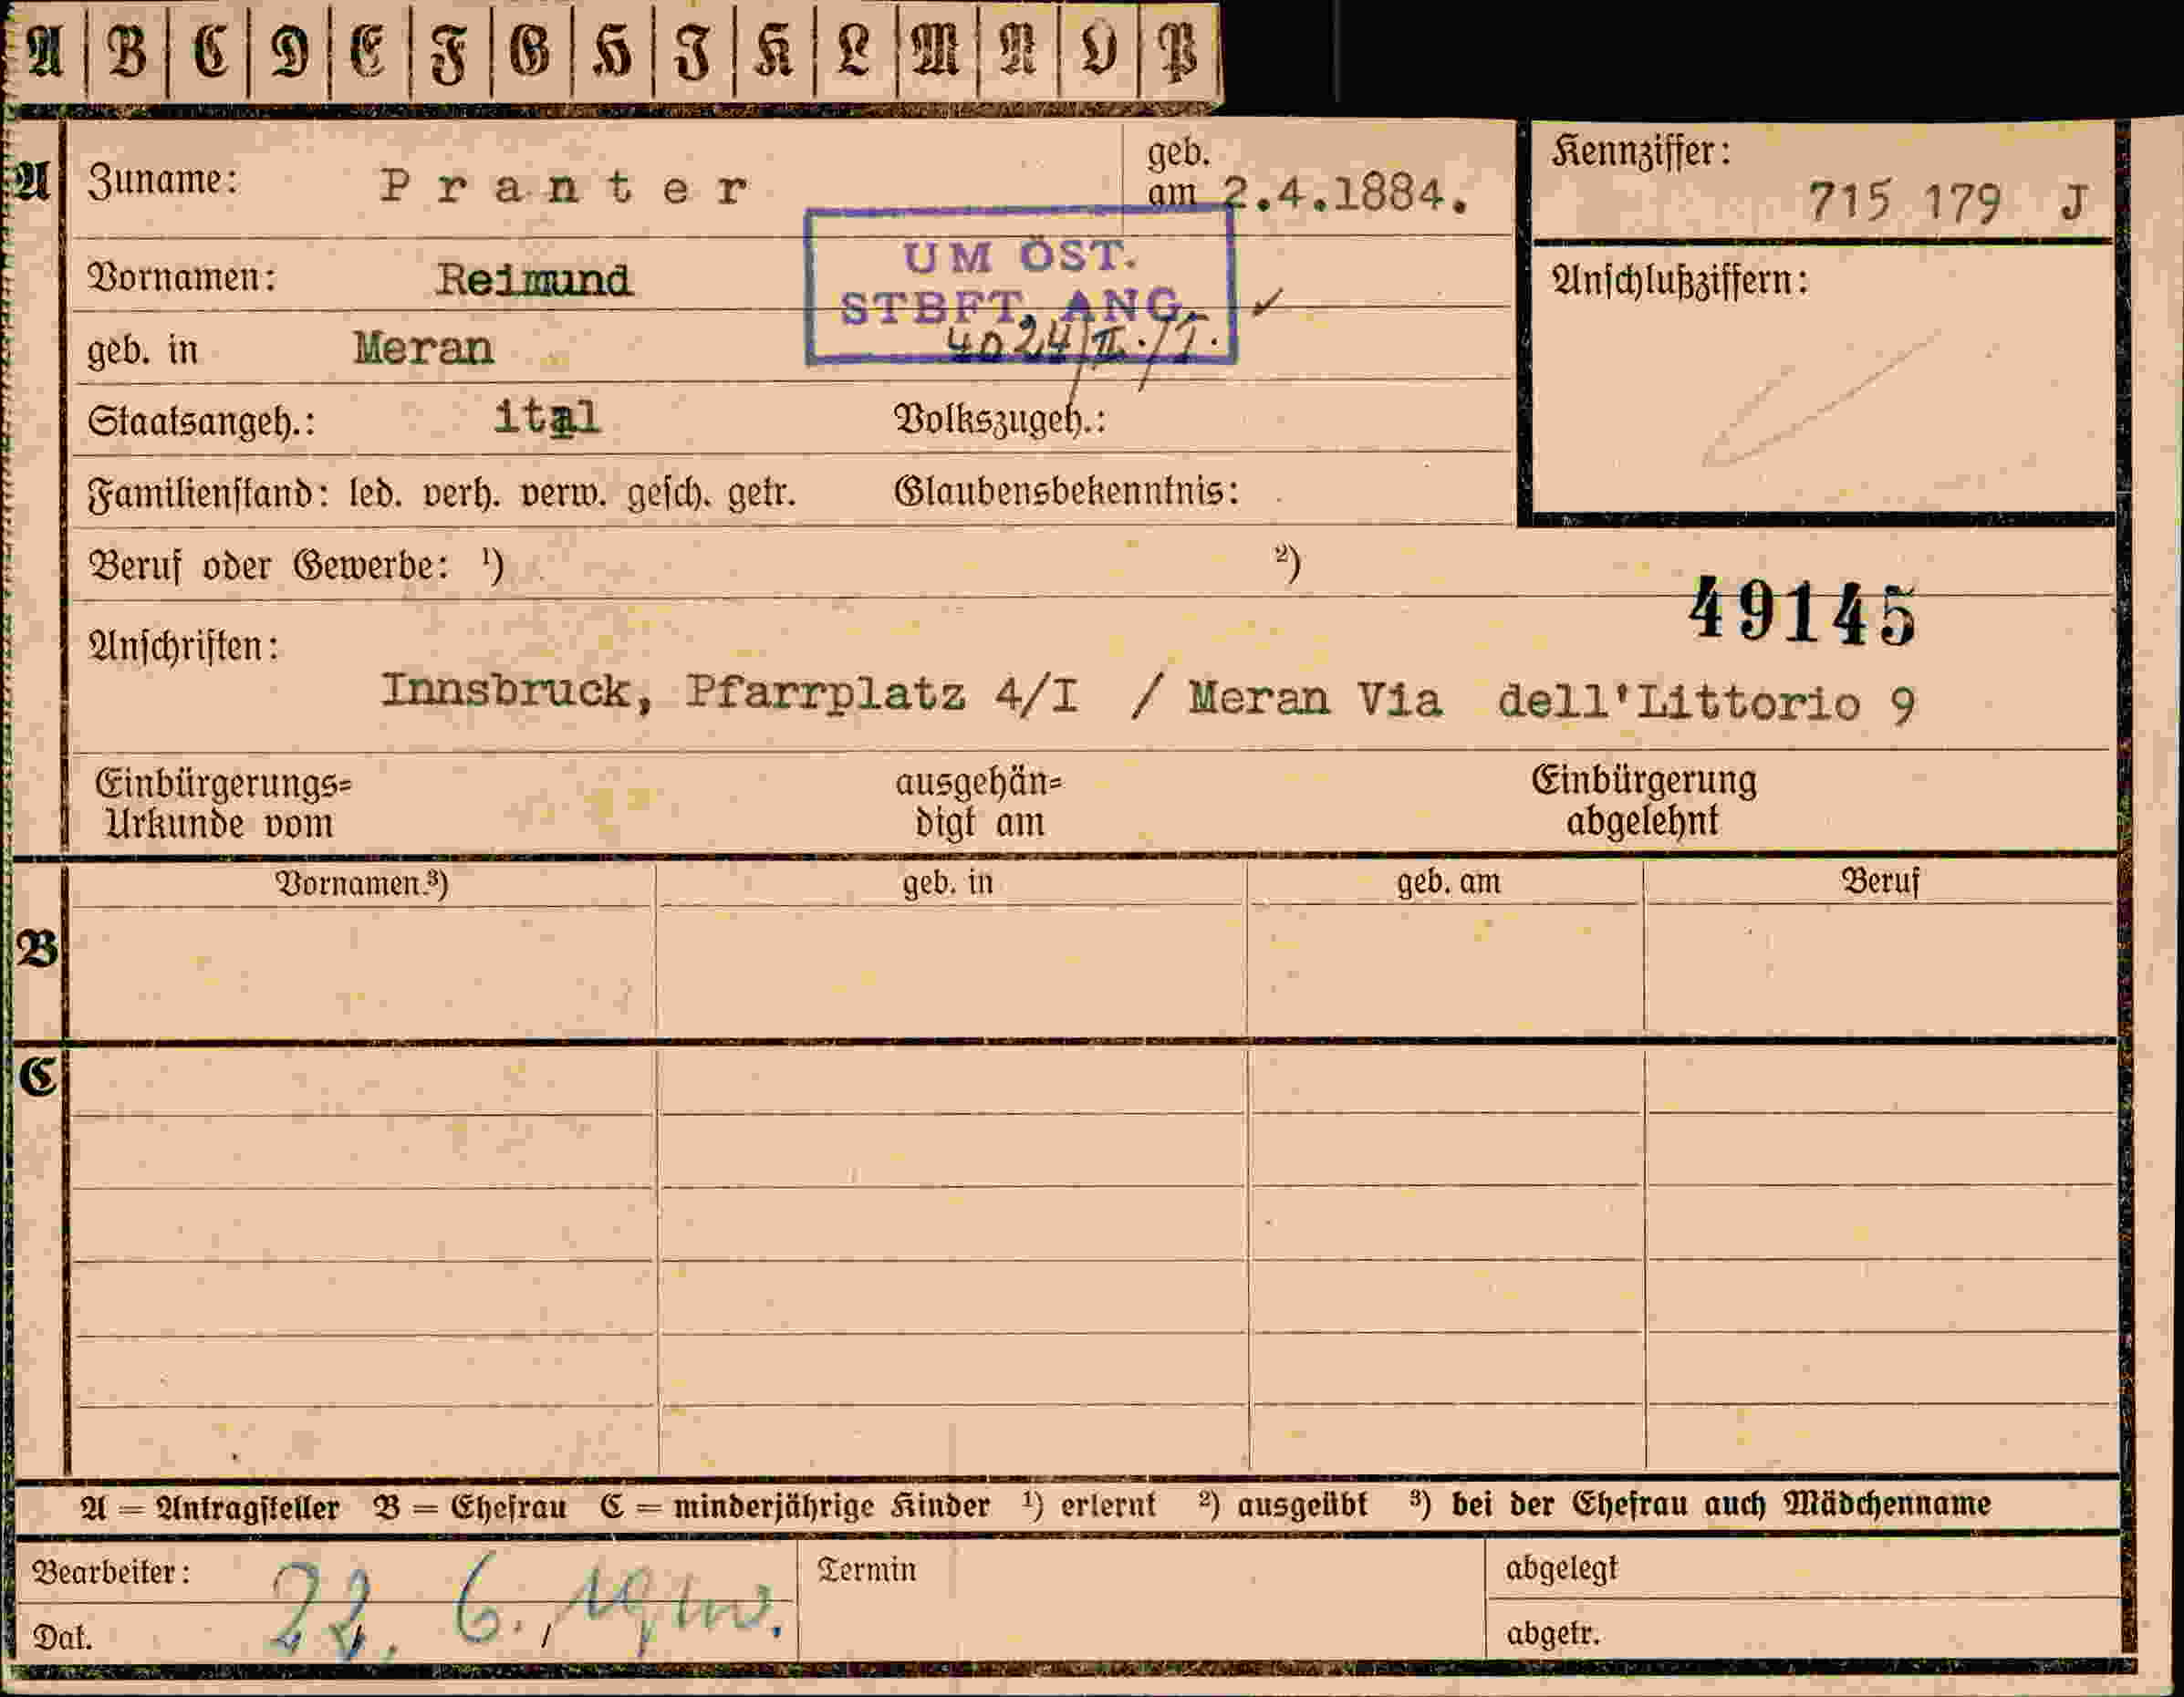 A B C D E F G H I K L M N O P
A Zuname: Pranter geb. am 2.4.1884. Kennziffer: 715 179 J
UM ÖST.
STBFT, ANG.
4024/II./1.
Vornamen: Reimund
Anschlußziffern:
geb. in Meran
Staatsangeh.: ital Volkszugeh.:
Familienstand: led. verh. verw. gesch. getr. Glaubensbekenntnis:
Beruf oder Gewerbe: ¹) ²)
49145
Anschriften:
Innsbruck, Pfarrplatz 4/I / Meran Via dell'Littorio 9
Einbürgerungs= ausgehän= Einbürgerung
Urkunde vom digt am abgelehnt
Vornamen.³) geb. in geb. am Beruf
B
C
A = Antragsteller B = Ehefrau C = minderjährige Kinder ¹) erlernt ²) ausgeübt ³) bei der Ehefrau auch Mädchenname
Bearbeiter: Termin abgelegt
Dat. 22. 6. abgetr.